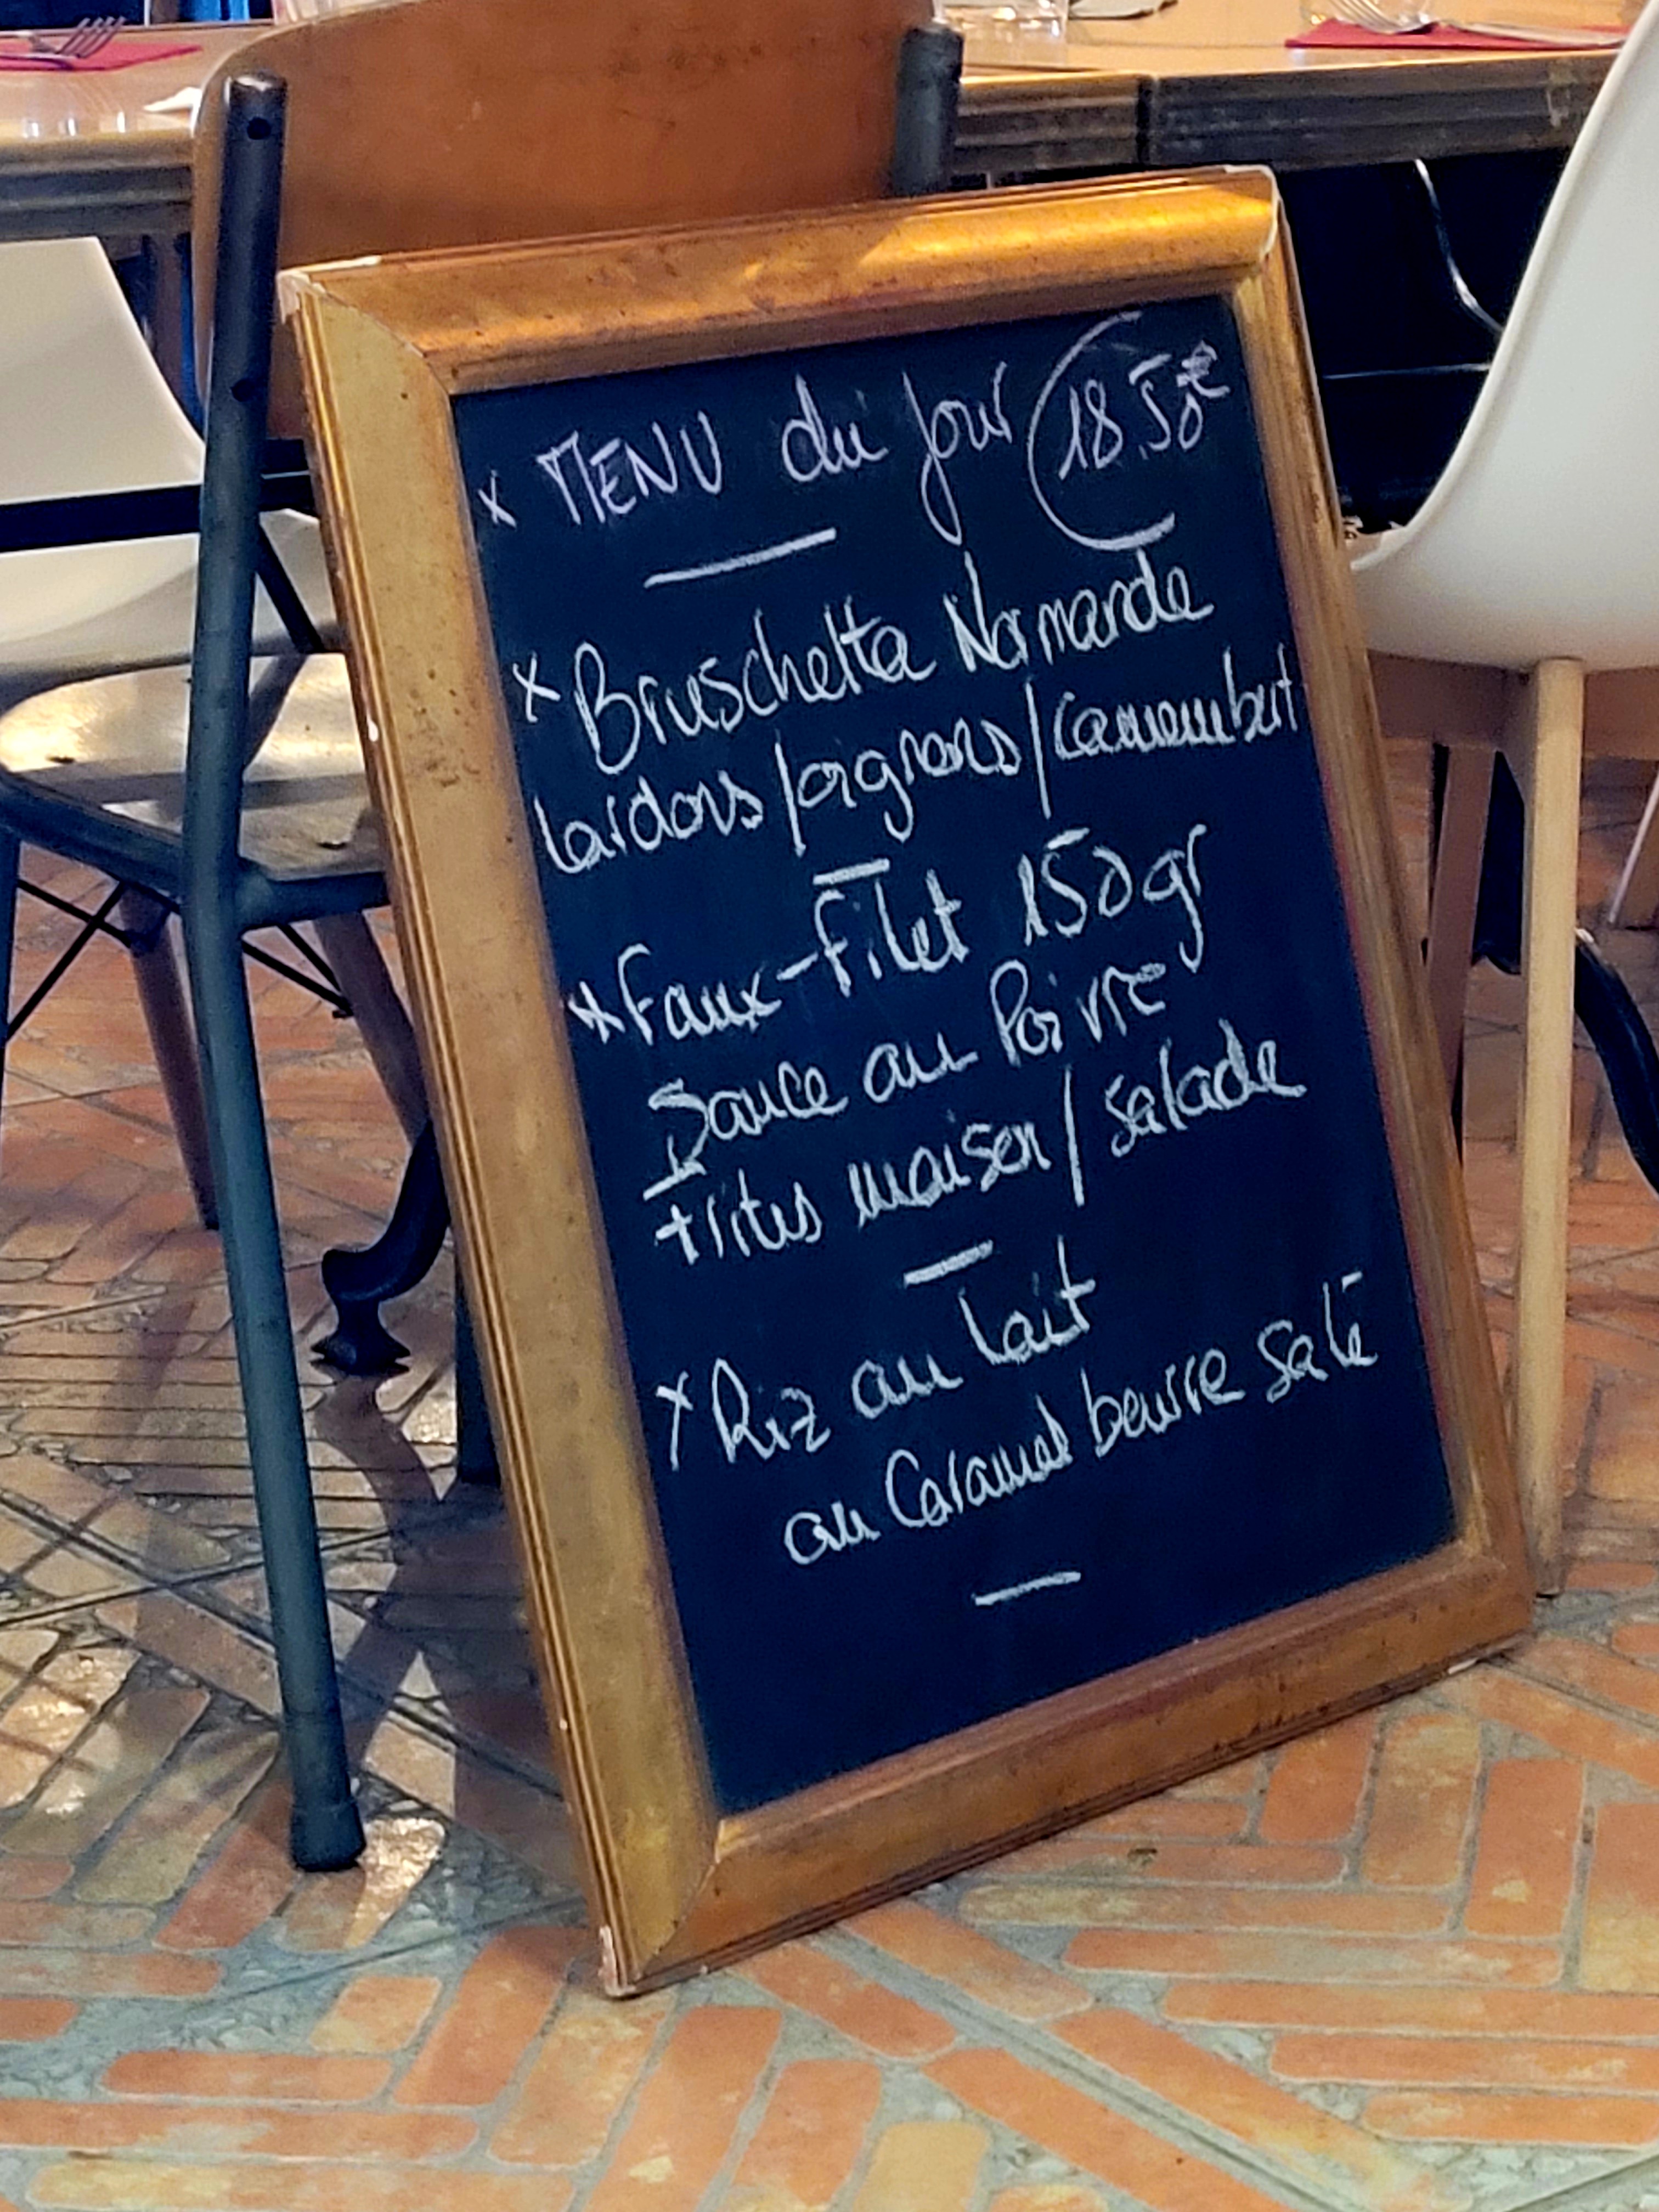 x MENU du jour 18.50€
x Bruschetta Normande
lardons/oignons/camembert
x Faux-Filet 150gr
Sauce au Poivre
+ frites maison/salade
x Riz au lait
au Caramel beurre salé